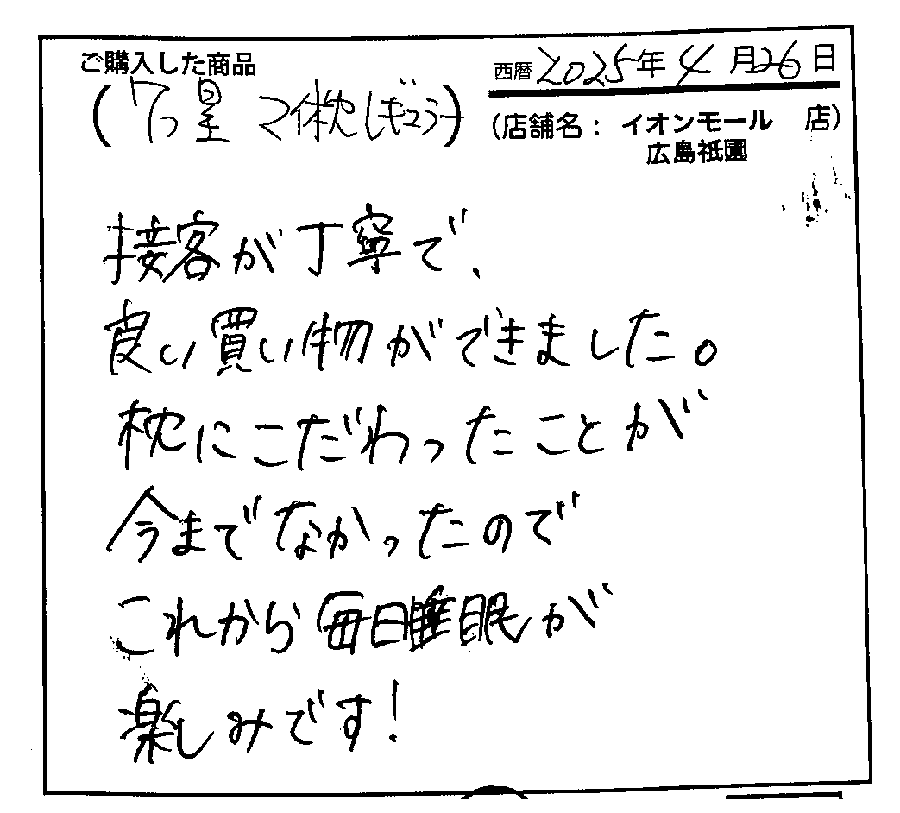 ご購入した商品
西暦2025年4月26日
(7つ星 マイ枕レギュラー)
(店舗名：イオンモール 店)
広島祇園
接客が丁寧で、
良い買い物ができました。
枕にこだわったことが
今までなかったので
これから毎日睡眠が
楽しみです!